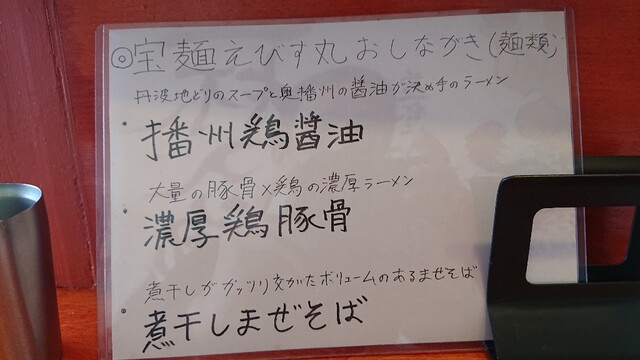 ◎宝麺えびす丸 おしながき(麺類)
丹波地どりのスープと奥播州の醤油が決め手のラーメン
・播州鶏醤油
大量の豚骨×鶏の濃厚ラーメン
・濃厚鶏豚骨
煮干しがガッツリ効いたボリュームのあるまぜそば
・煮干しまぜそば